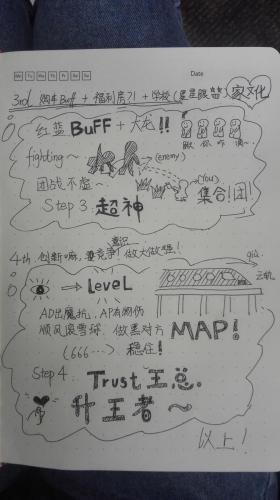 Mo Tu We Th Fr Sa Su
Date
3rd 购车Buff + 福利房?! + 学校(星星眼
家文化
红蓝 BuFF + 大龙!!
fighting~
(enemy)
(You)
团战不虚~
集合!团!
Step 3: 超神
意识
4th 创新嘛,要竞争!做大做强!
→ leveL
云轨
AD出魔抗,AP有物伤
顺风滚雪球,做黑对方 MAP!
(666...) 稳住!
Step 4:
Trust 王总.
升王者~
以上!